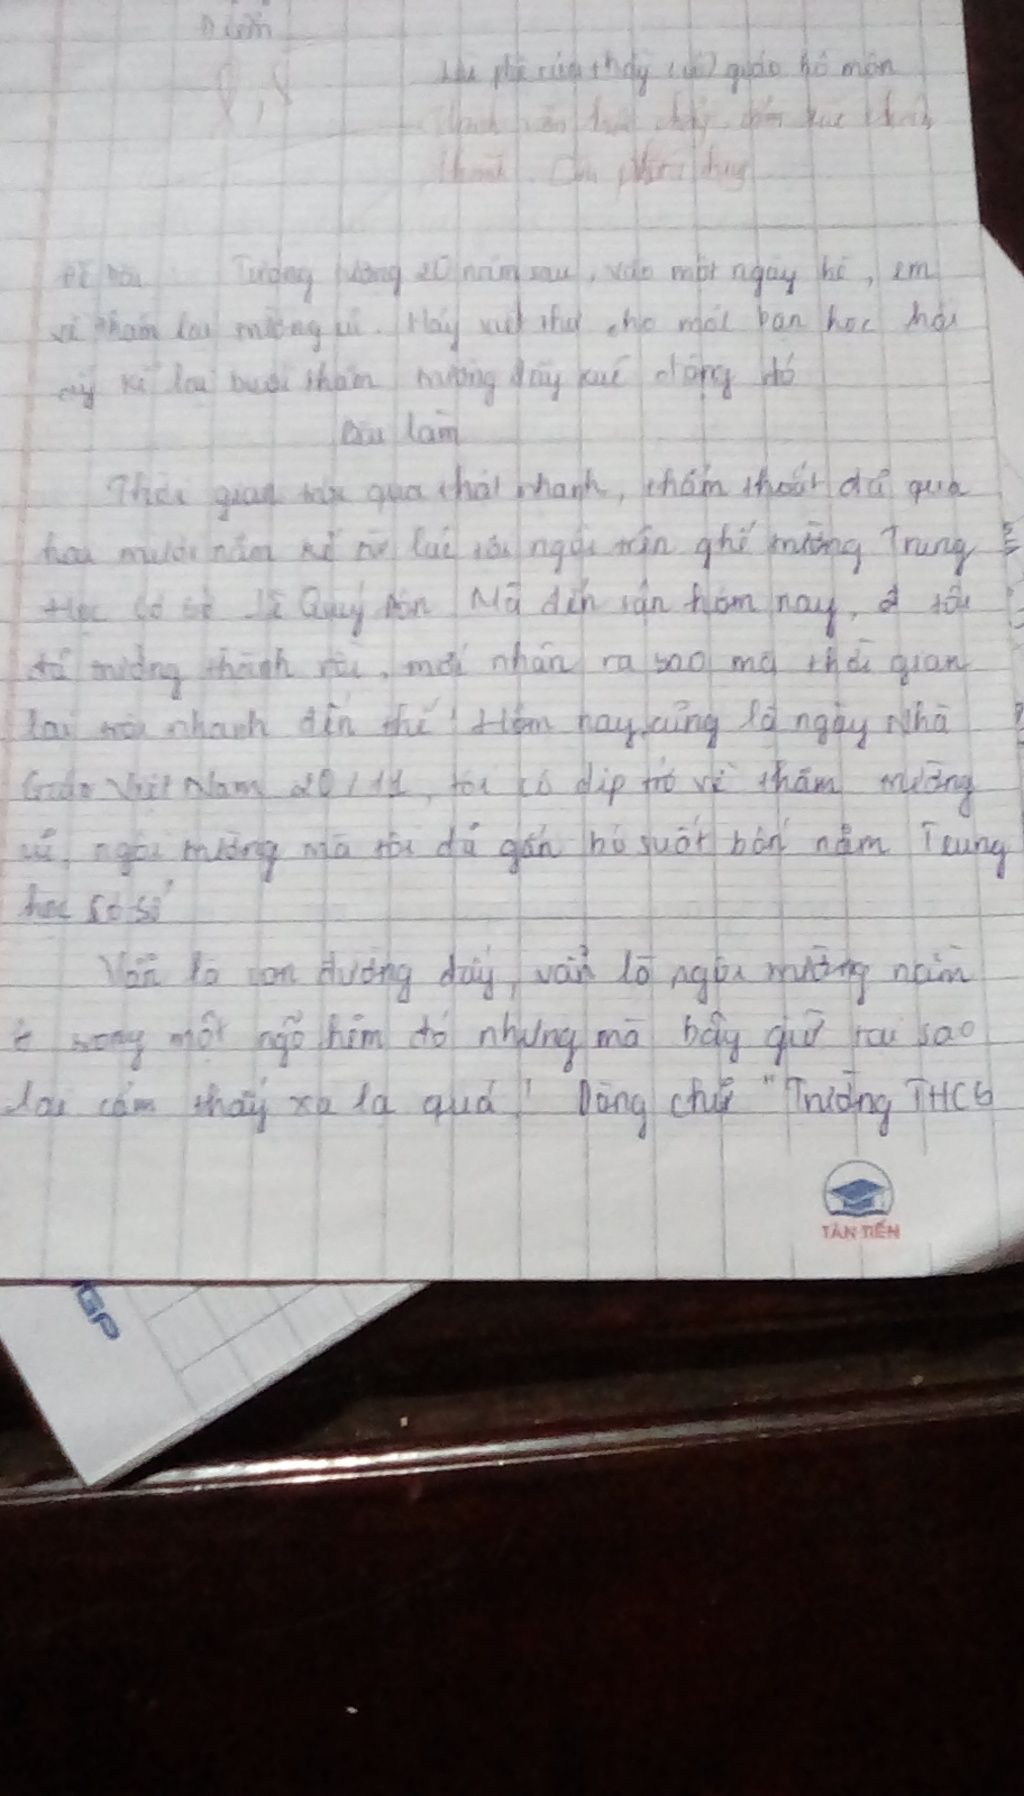 Điểm
Lời phê của thầy (cô) giáo bộ môn
8,8
Hành văn trôi chảy, cảm xúc chân
thành. Cần phát huy
Đề bài Tưởng tượng 20 năm sau, vào một ngày hè, em
về thăm lại trường cũ. Hãy viết thư cho một bạn học hồi
ấy kể lại buổi thăm trường đầy xúc động đó
Bài làm
Thời gian trôi qua thật nhanh, thấm thoắt đã qua
hai mươi năm kể từ lúc tôi ngồi trên ghế trường Trung
Học Cơ Sở Lê Quý Đôn Mà đến tận hôm nay, tôi
đã trưởng thành rồi, mới nhận ra sao mà thời gian
lại trôi nhanh đến thế! Hôm nay, cũng là ngày Nhà
Giáo Việt Nam 20/11, tôi có dịp trở về thăm trường
cũ, ngôi trường mà tôi đã gắn bó suốt bốn năm Trung
học cơ sở
Vẫn là con đường đấy, vẫn là ngôi trường nằm
ở trong một ngõ hẻm đó nhưng mà bây giờ tại sao
lại cảm thấy xa lạ quá! Dòng chữ "Trường THCS
TÂN TIẾN
GP